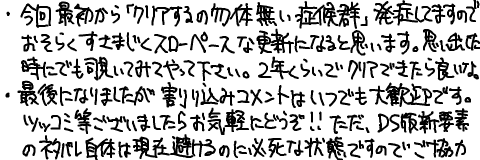 ・今回最初から「クリアするの勿体無い症候群」発症してますので
おそらくすさまじくスローペースな更新になると思います。思い出した
時にでも覗いてみてやって下さい。2年くらいでクリアできたら良いな。
・最後になりましたが割り込みコメントはいつでも大歓迎です。
ツッコミ等ございましたらお気軽にどうぞ!!ただ、DS版新要素
のネタバレ自体は現在避けるのに必死な状態ですのでご協力